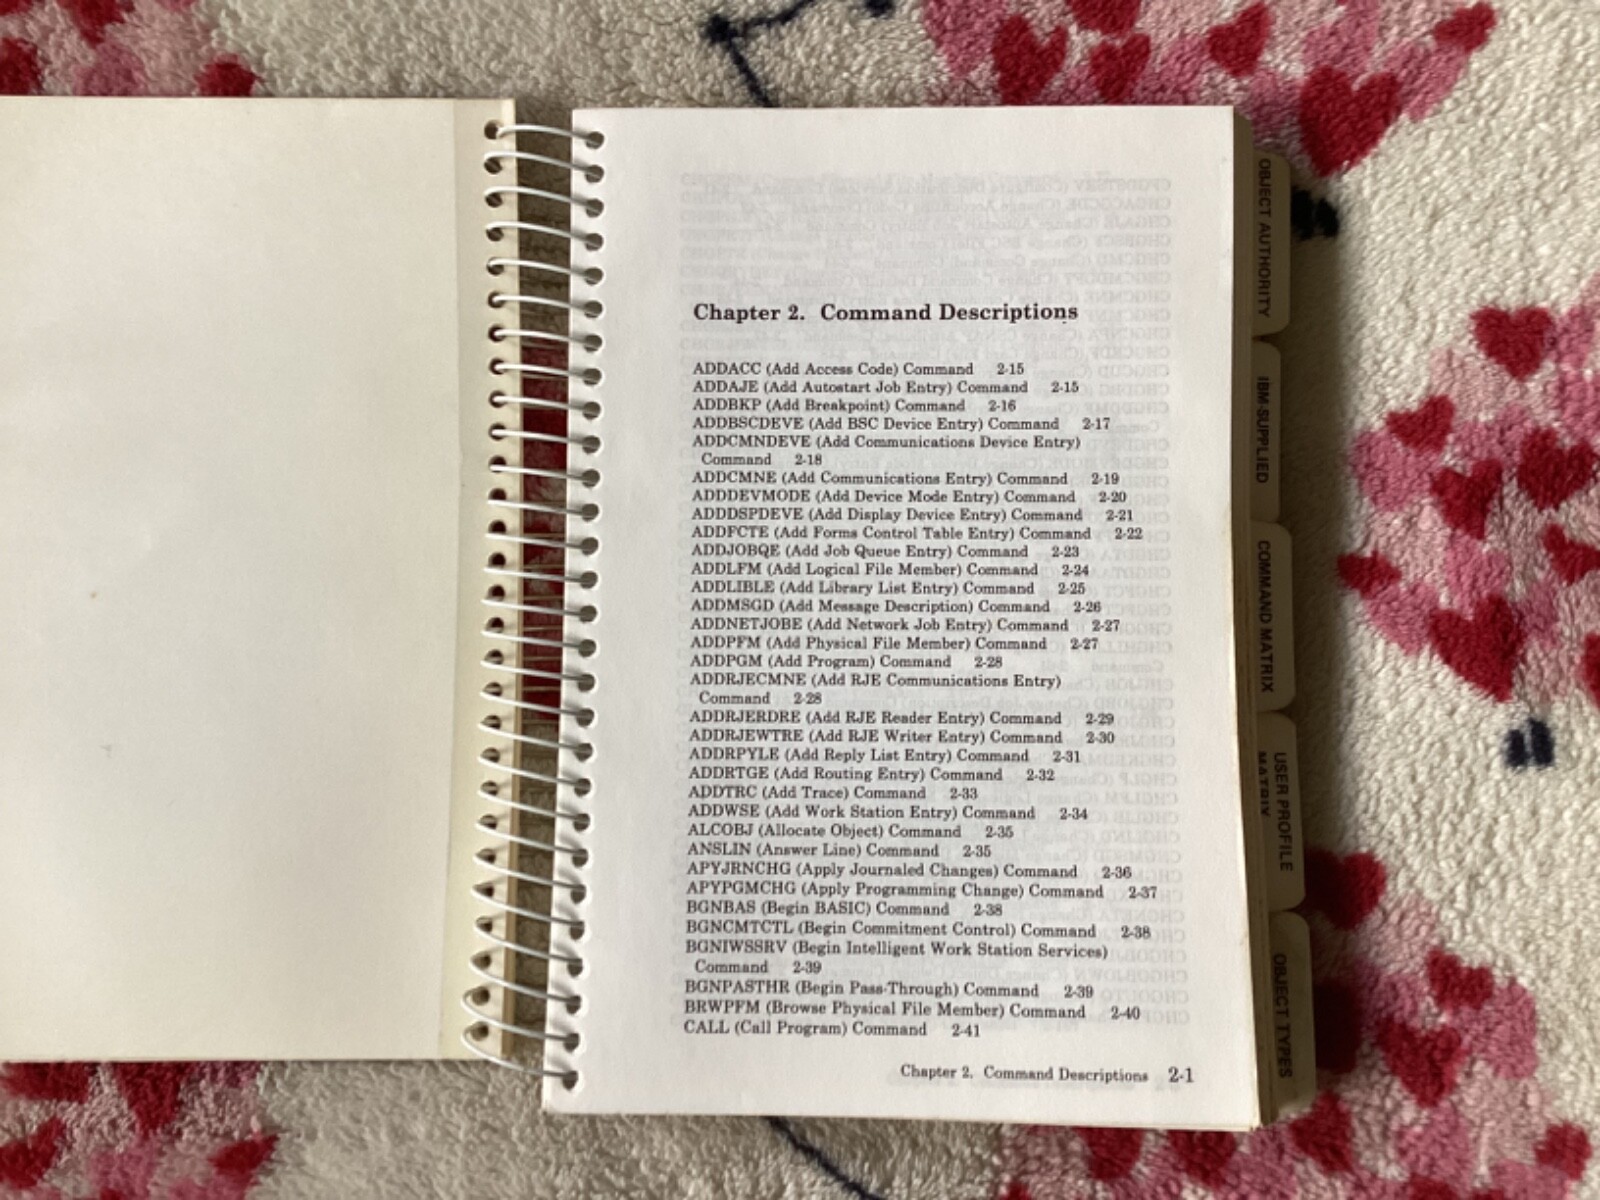 Chapter 2. Command Descriptions
ADDACC (Add Access Code) Command 2-15
ADDAJE (Add Autostart Job Entry) Command 2-15
ADDBKP (Add Breakpoint) Command 2-16
ADDBSCDEVE (Add BSC Device Entry) Command 2-17
ADDCMNDEVE (Add Communications Device Entry)
Command 2-18
ADDCMNE (Add Communications Entry) Command 2-19
ADDDEVMODE (Add Device Mode Entry) Command 2-20
ADDDSPDEVE (Add Display Device Entry) Command 2-21
ADDFCTE (Add Forms Control Table Entry) Command 2-22
ADDJOBQE (Add Job Queue Entry) Command 2-23
ADDLFM (Add Logical File Member) Command 2-24
ADDLIBLE (Add Library List Entry) Command 2-25
ADDMSGD (Add Message Description) Command 2-26
ADDNETJOBE (Add Network Job Entry) Command 2-27
ADDPFM (Add Physical File Member) Command 2-27
ADDPGM (Add Program) Command 2-28
ADDRJECMNE (Add RJE Communications Entry)
Command 2-28
ADDRJERDRE (Add RJE Reader Entry) Command 2-29
ADDRJEWTRE (Add RJE Writer Entry) Command 2-30
ADDRPYLE (Add Reply List Entry) Command 2-31
ADDRTGE (Add Routing Entry) Command 2-32
ADDTRC (Add Trace) Command 2-33
ADDWSE (Add Work Station Entry) Command 2-34
ALCOBJ (Allocate Object) Command 2-35
ANSLIN (Answer Line) Command 2-35
APYJRNCHG (Apply Journaled Changes) Command 2-36
APYPGMCHG (Apply Programming Change) Command 2-37
BGNBAS (Begin BASIC) Command 2-38
BGNCMTCTL (Begin Commitment Control) Command 2-38
BGNIWSSRV (Begin Intelligent Work Station Services)
Command 2-39
BGNPASTHR (Begin Pass-Through) Command 2-39
BRWPFM (Browse Physical File Member) Command 2-40
CALL (Call Program) Command 2-41
Chapter 2. Command Descriptions 2-1
OBJECT AUTHORITY
IBM-SUPPLIED
COMMAND MATRIX
USER PROFILE
MATRIX
OBJECT TYPES